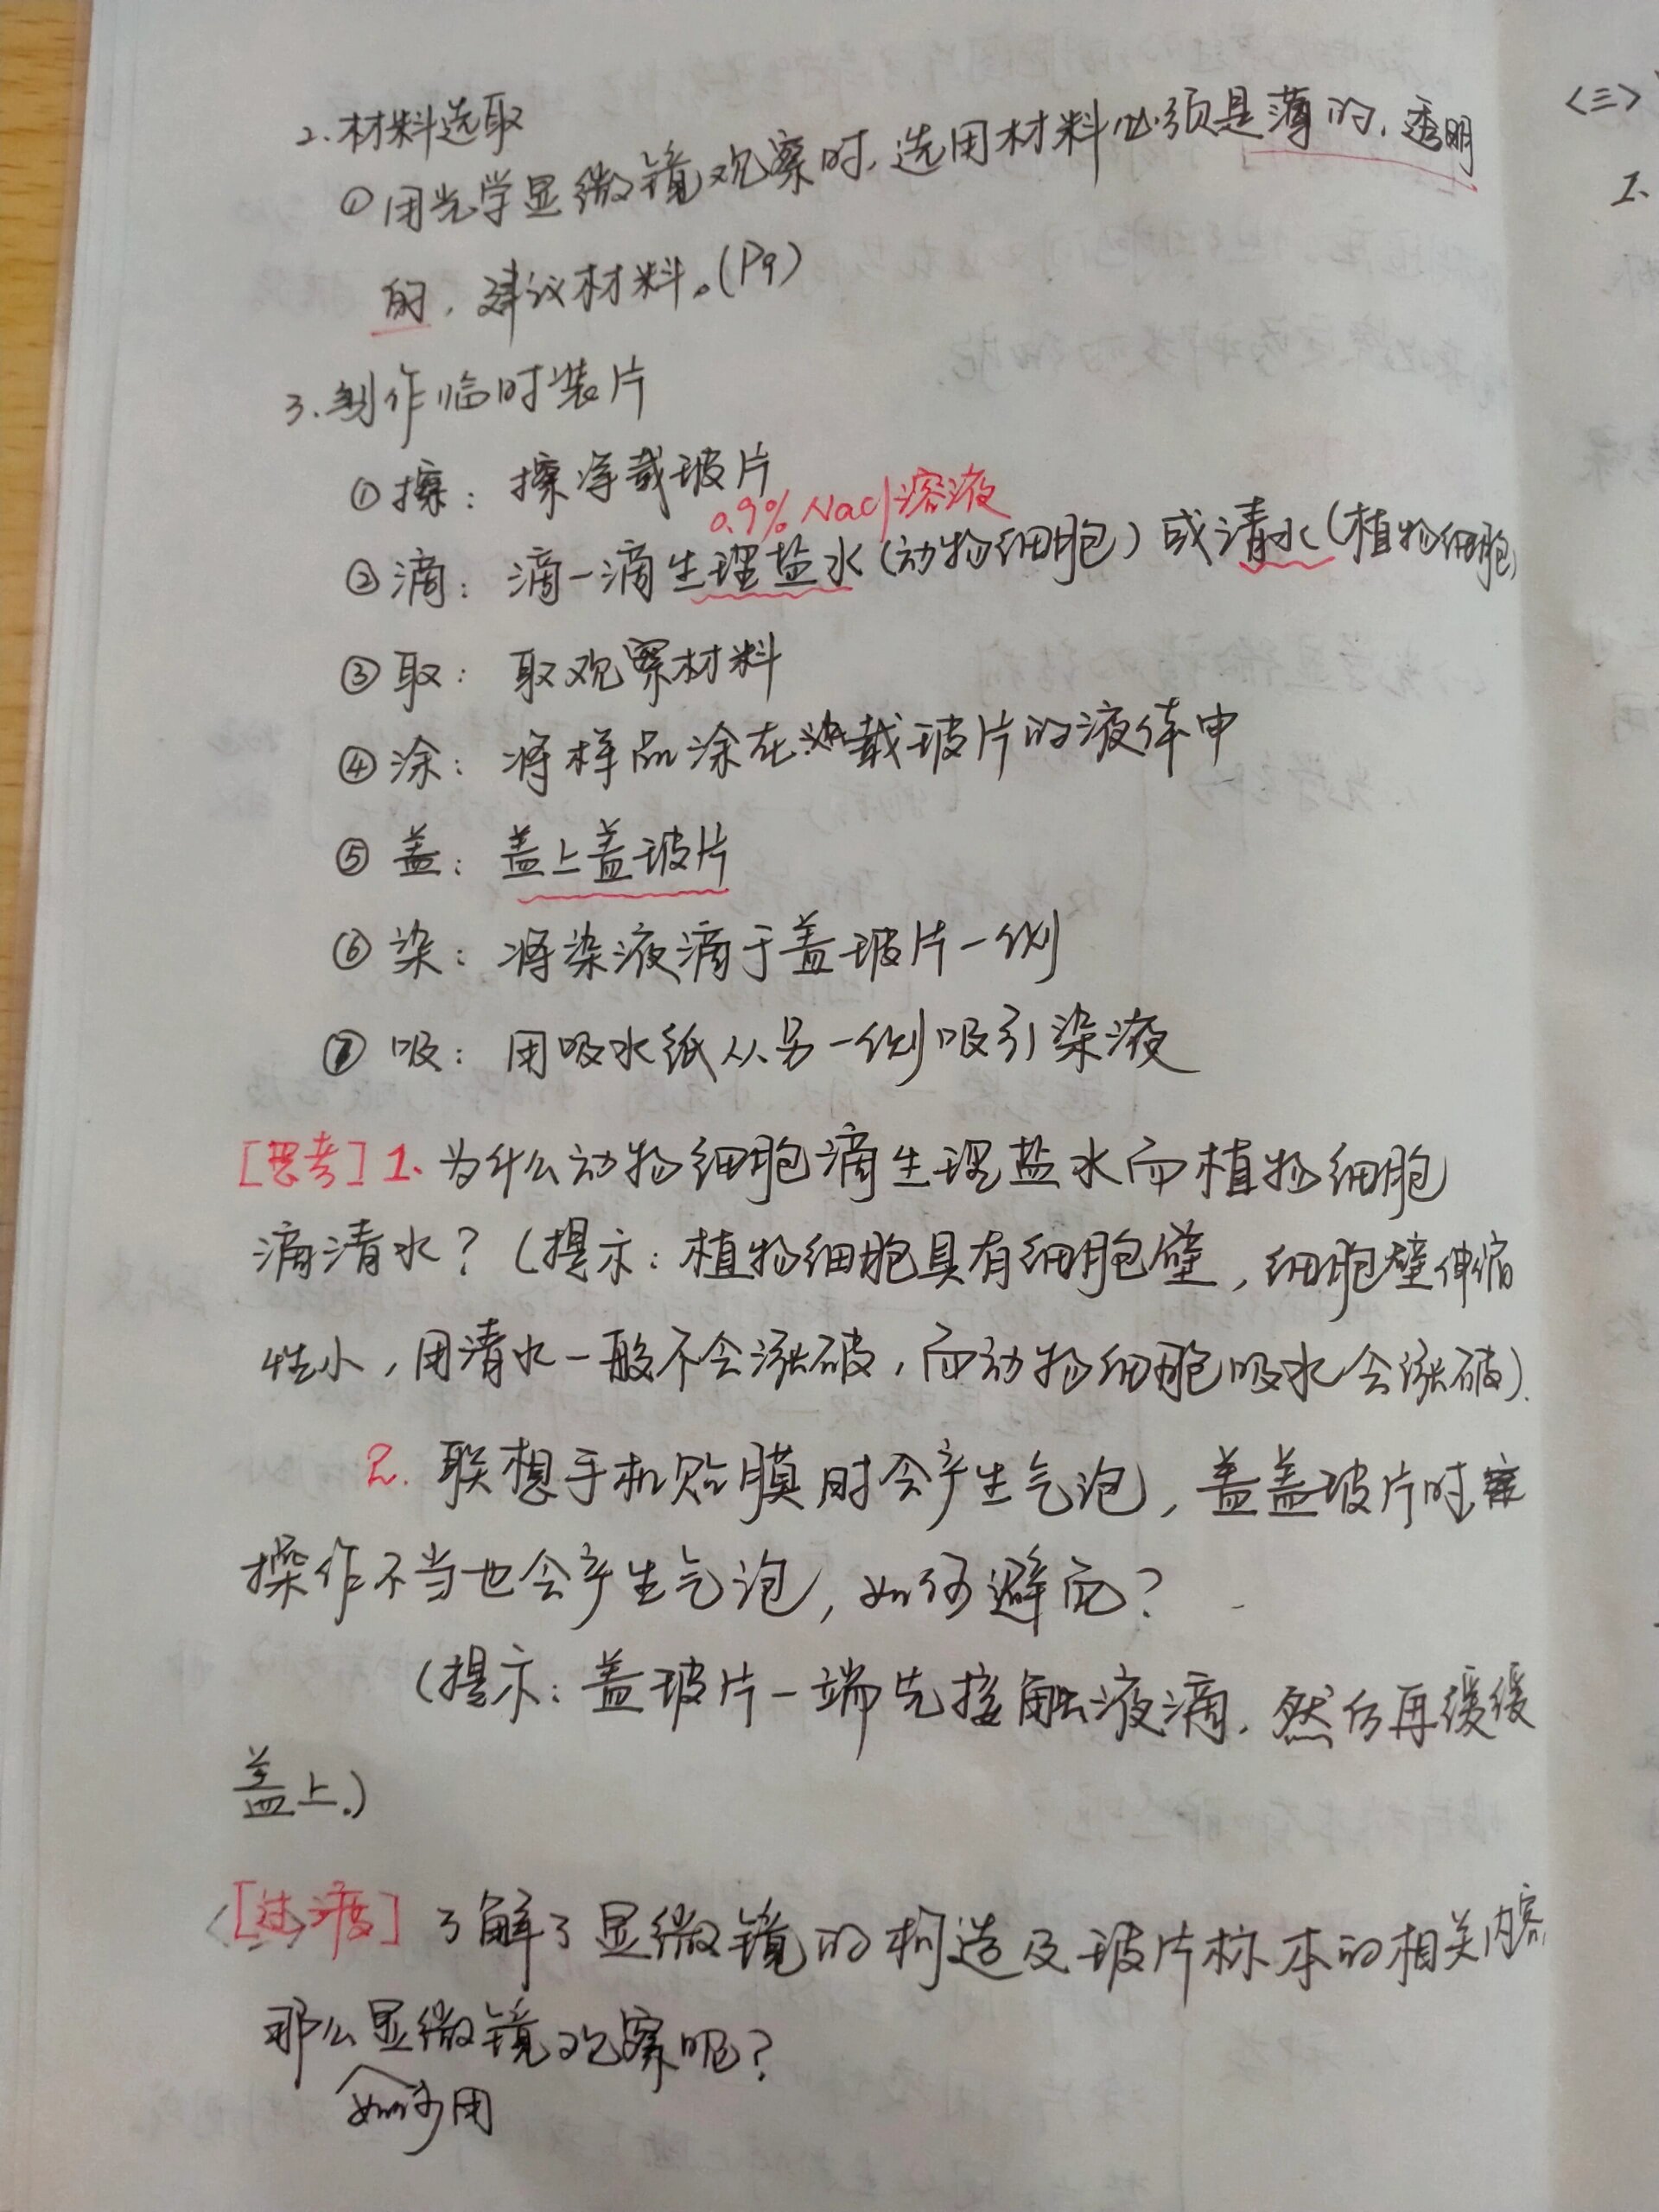 2.材料选取
①用光学显微镜观察时,选用材料必须是薄的,透明
的,建议材料。(P9)
3.制作临时装片
①擦:擦净载玻片
0.9% NaCl溶液
②滴:滴一滴生理盐水(动物细胞)或清水(植物细胞)
③取:取观察材料
④涂:将样品涂在载玻片的液体中
⑤盖:盖上盖玻片
⑥染:将染液滴于盖玻片一侧
⑦吸:用吸水纸从另一侧吸引染液
[思考]1.为什么动物细胞滴生理盐水而植物细胞
滴清水?(提示:植物细胞具有细胞壁,细胞壁伸缩
性小,用清水一般不会涨破,而动物细胞吸水会涨破).
2.联想手机贴膜时会产生气泡,盖盖玻片时
操作不当也会产生气泡,如何避免?
(提示:盖玻片一端先接触液滴,然后再缓缓
盖上.)
[过渡]了解了显微镜的构造及玻片标本的相关内容,
那么显微镜观察呢?
如何用
<三>
1.